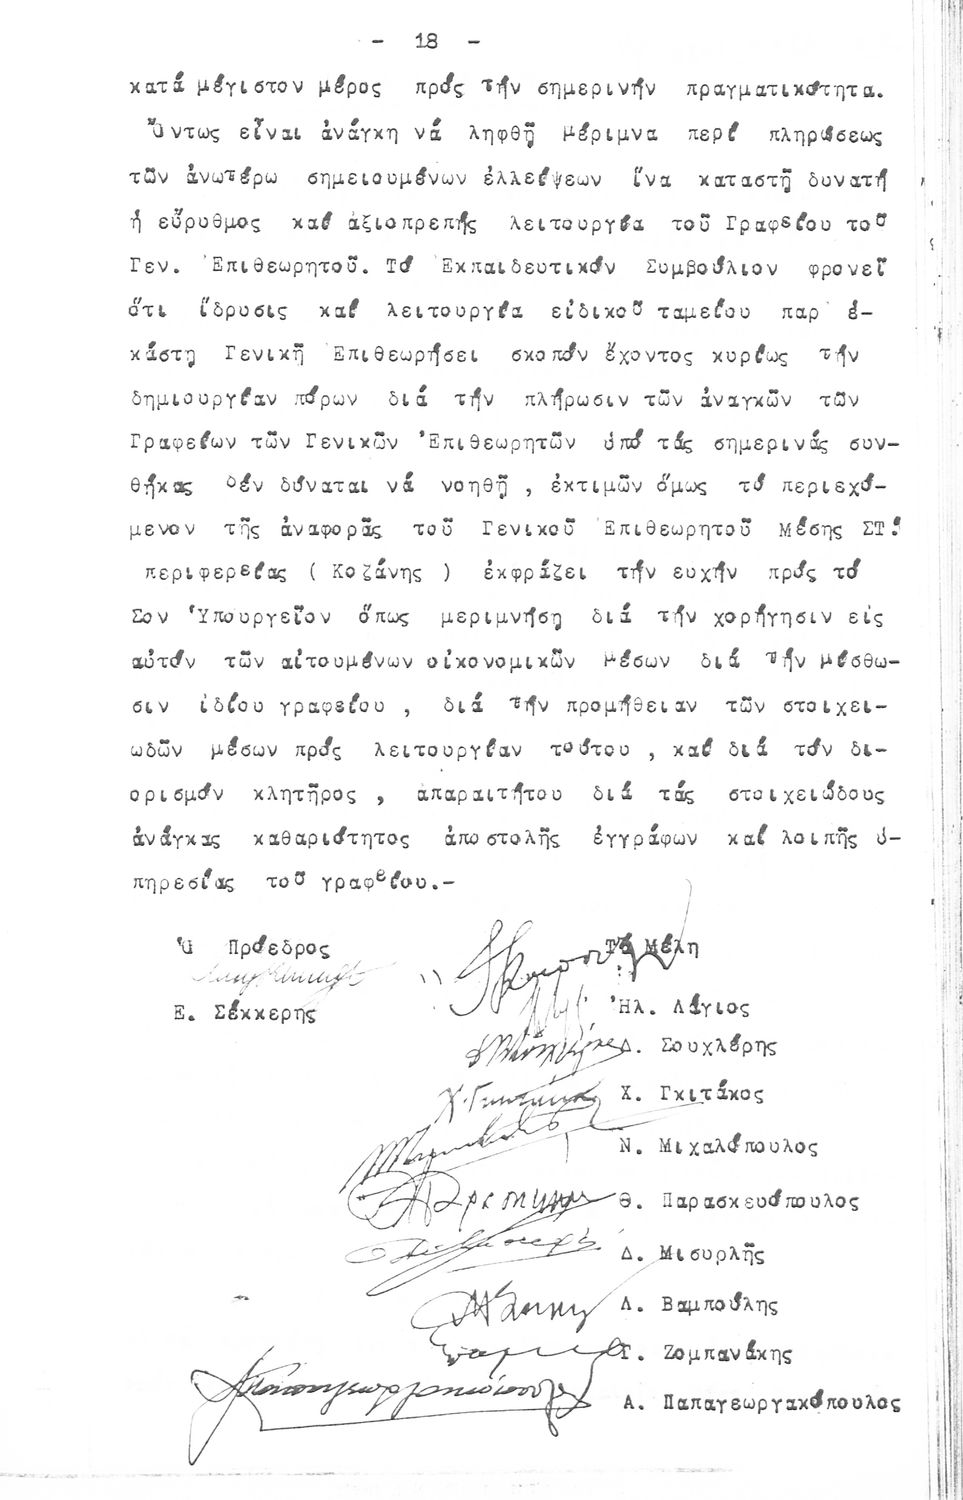 - 18 -
κατά μέγιστον μέρος πρός τήν σημερινήν πραγματικότητα.
Ὄντως εἶναι ἀνάγκη νά ληφθῇ μέριμνα περί πληρώσεως
τῶν ἀνωτέρω σημειουμένων ἐλλείψεων ἵνα καταστῇ δυνατή
ἡ εὔρυθμος καί ἀξιοπρεπής λειτουργία τοῦ Γραφείου τοῦ
Γεν. Ἐπιθεωρητοῦ. Τό Ἐκπαιδευτικόν Συμβούλιον φρονεῖ
ὅτι ἵδρυσις καί λειτουργία εἰδικοῦ ταμείου παρ' ἑ-
κάστῃ Γενικῇ Ἐπιθεωρήσει σκοπόν ἔχοντος κυρίως τήν
δημιουργίαν πόρων διά τήν πλήρωσιν τῶν ἀναγκῶν τῶν
Γραφείων τῶν Γενικῶν Ἐπιθεωρητῶν ὑπό τάς σημερινάς συν-
θήκας δέν δύναται νά νοηθῇ , ἐκτιμῶν ὅμως τό περιεχό-
μενον τῆς ἀναφορᾶς τοῦ Γενικοῦ Ἐπιθεωρητοῦ Μέσης ΣΤ!
περιφερείας ( Κοζάνης ) ἐκφράζει τήν ευχήν πρός τό
Σον Ὑπουργεῖον ὅπως μεριμνήσῃ διά τήν χορήγησιν εἰς
αὐτόν τῶν αἰτουμένων οἰκονομικῶν μέσων διά τήν μίσθω-
σιν ἰδίου γραφείου , διά τήν προμήθειαν τῶν στοιχει-
ωδῶν μέσων πρός λειτουργίαν τούτου , καί διά τόν δι-
ορισμόν κλητῆρος , ἀπαραιτήτου διά τάς στοιχειώδους
ἀνάγκας καθαριότητος ἀποστολῆς ἐγγράφων καί λοιπῆς ὑ-
πηρεσίας τοῦ γραφείου.-
Ὁ Πρόεδρος Τά Μέλη
Ε. Σέκκερης Ἠλ. Λάγιος
Δ. Σουχλέρης
Χ. Γκιτάκος
Ν. Μιχαλόπουλος
Θ. Παρασκευόπουλος
Δ. Μισυρλῆς
Λ. Βαμπούλης
Γ. Ζομπανάκης
Α. Παπαγεωργακόπουλος